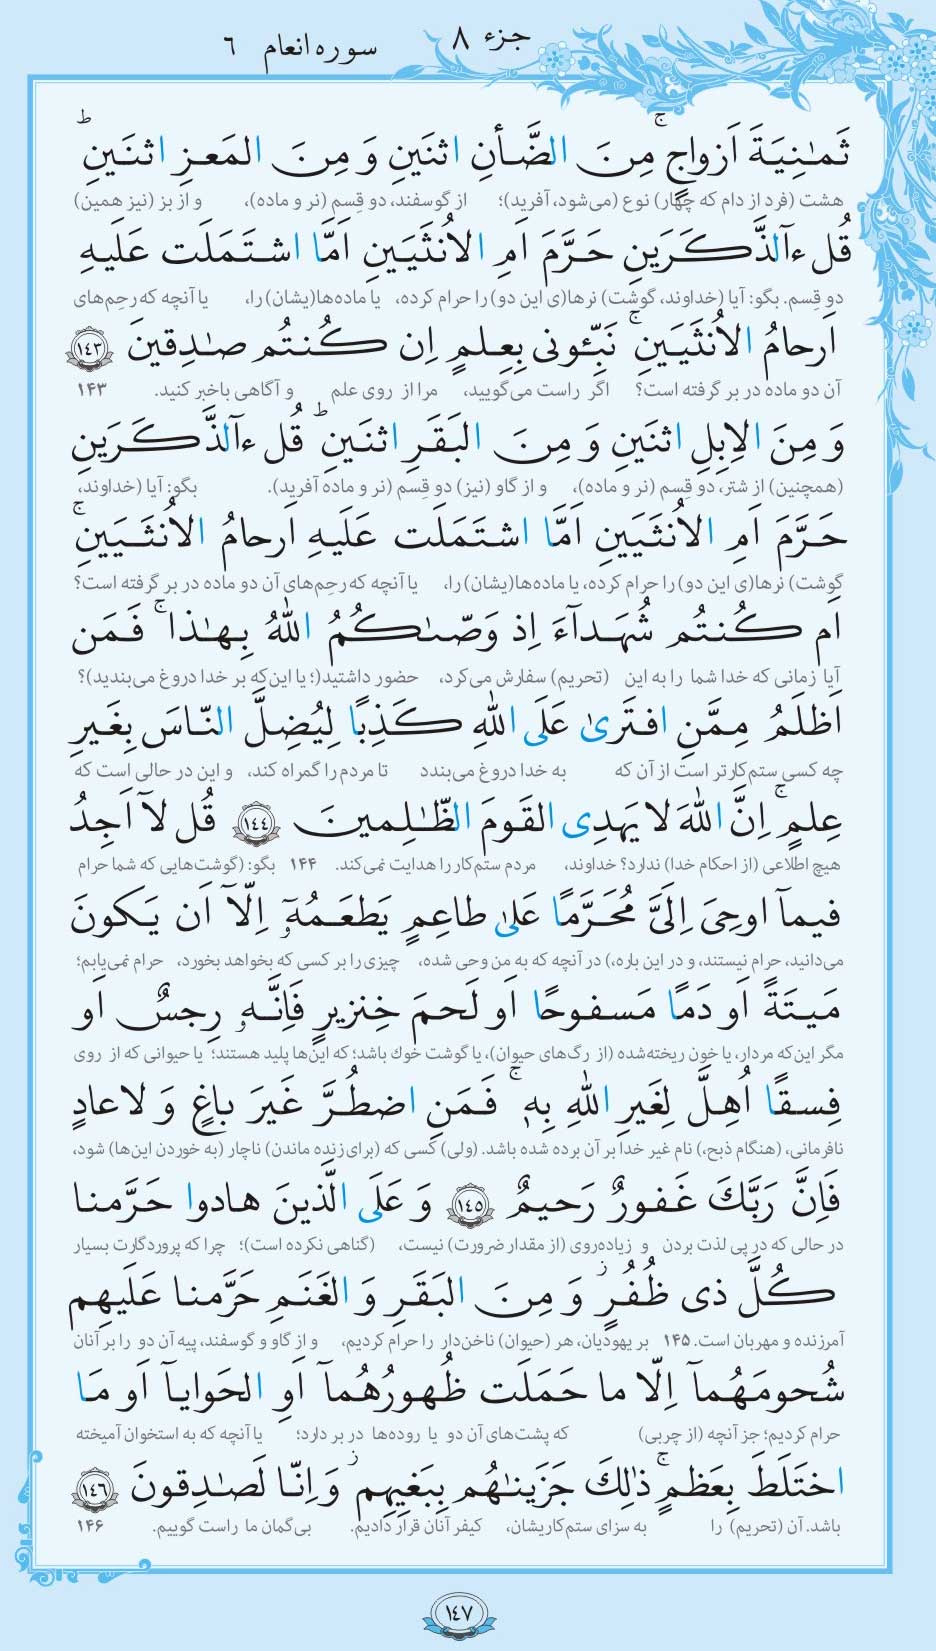 جزء ۸
سوره انعام ۶
ثَمـٰنِيَةَ اَزواجٍ ۚ مِنَ الضَّأنِ اثنَينِ وَ مِنَ المَعزِ اثنَينِ ؕ
هشت (فرد از دام که چهار) نوع (می‌شود، آفرید)؛ از گوسفند، دو قِسم (نر و ماده)، و از بز (نیز همین)
قُل ءآلذَّكَرَينِ حَرَّمَ اَمِ الاُنثَيَينِ اَمَّا اشتَمَلَت عَلَيهِ
دو قِسم. بگو: آیا (خداوند، گوشت) نرها(ی این دو) را حرام کرده، یا ماده‌ها(یشان) را، یا آنچه که رحِم‌های
اَرحامُ الاُنثَيَينِ ۚ نَبِّئونى بِعِلمٍ اِن كُنتُم صادِقينَ ﴿١٤٣﴾
آن دو ماده در بر گرفته است؟ اگر راست می‌گویید، مرا از روی علم و آگاهی باخبر کنید. ۱۴۳
وَ مِنَ الاِبِلِ اثنَينِ وَ مِنَ البَقَرِ اثنَينِ ؕ قُل ءآلذَّكَرَينِ
(همچنین) از شتر، دو قِسم (نر و ماده)، و از گاو (نیز) دو قِسم (نر و ماده آفرید). بگو: آیا (خداوند،
حَرَّمَ اَمِ الاُنثَيَينِ اَمَّا اشتَمَلَت عَلَيهِ اَرحامُ الاُنثَيَينِ ۚ
گوشت) نرها(ی این دو) را حرام کرده، یا ماده‌ها(یشان) را، یا آنچه که رحِم‌های آن دو ماده در بر گرفته است؟
اَم كُنتُم شُهَدآءَ اِذ وَصّىٰكُمُ اللّٰهُ بِهـٰذا ۚ فَمَن
آیا زمانی که خدا شما را به این (تحریم) سفارش می‌کرد، حضور داشتید(؛ یا این‌که بر خدا دروغ می‌بندید)؟
اَظلَمُ مِمَّنِ افتَرىٰ عَلَى اللّٰهِ كَذِبًا لِيُضِلَّ النّاسَ بِغَيرِ
چه کسی ستم‌کارتر است از آن که به خدا دروغ می‌بندد تا مردم را گمراه کند، و این در حالی است که
عِلمٍ ۚ اِنَّ اللّٰهَ لا يَهدِى القَومَ الظّـٰلِمينَ ﴿١٤٤﴾ قُل لآ اَجِدُ
هیچ اطلاعی (از احکام خدا) ندارد؟ خداوند، مردم ستم‌کار را هدایت نمی‌کند. ۱۴۴ بگو: (گوشت‌هایی که شما حرام
فيمآ اوحِىَ اِلَىَّ مُحَرَّمًا عَلىٰ طاعِمٍ يَطعَمُهٗٓ اِلّآ اَن يَكونَ
می‌دانید، حرام نیستند، و در این باره،) در آنچه که به من وحی شده، چیزی را بر کسی که بخواهد بخورد، حرام نمی‌یابم؛
مَيتَةً اَو دَمًا مَسفوحًا اَو لَحمَ خِنزيرٍ فَاِنَّهٗ رِجسٌ اَو
مگر این‌که مردار، یا خون ریخته‌شده (از رگ‌های حیوان)، یا گوشت خوك باشد؛ که این‌ها پلید هستند؛ یا حیوانی که از روی
فِسقًا اُهِلَّ لِغَيرِ اللّٰهِ بِهٖ ۚ فَمَنِ اضطُرَّ غَيرَ باغٍ وَ لا عادٍ
نافرمانی، (هنگام ذبح،) نام غیر خدا بر آن برده شده باشد. (ولی) کسی که (برای زنده ماندن) ناچار (به خوردن این‌ها) شود،
فَاِنَّ رَبَّكَ غَفورٌ رَحيمٌ ﴿١٤٥﴾ وَ عَلَى الَّذينَ هادوا حَرَّمنا
در حالی که در پی لذت بردن و زیاده‌روی (از مقدار ضرورت) نیست، (گناهی نکرده است)؛ چرا که پروردگارت بسیار
كُلَّ ذى ظُفُرٍ ۖ وَ مِنَ البَقَرِ وَ الغَنَمِ حَرَّمنا عَلَيهِم
آمرزنده و مهربان است. ۱۴۵ بر یهودیان، هر (حیوان) ناخن‌دار را حرام کردیم، و از گاو و گوسفند، پیه آن دو را بر آنان
شُحومَهُمآ اِلّا ما حَمَلَت ظُهورُهُمآ اَوِ الحَوايآ اَو مَا
حرام کردیم؛ جز آنچه (از چربی) که پشت‌های آن دو یا روده‌ها در بر دارد؛ یا آنچه که به استخوان آمیخته
اختَلَطَ بِعَظمٍ ۚ ذٰلِكَ جَزَينـٰهُم بِبَغيِهِم ۖ وَ اِنّا لَصـٰدِقونَ ﴿١٤٦﴾
باشد. آن (تحریم) را به سزای ستم‌کاریشان، کیفر آنان قرار دادیم. بی‌گمان ما راست گوییم. ۱۴۶
١٤٧